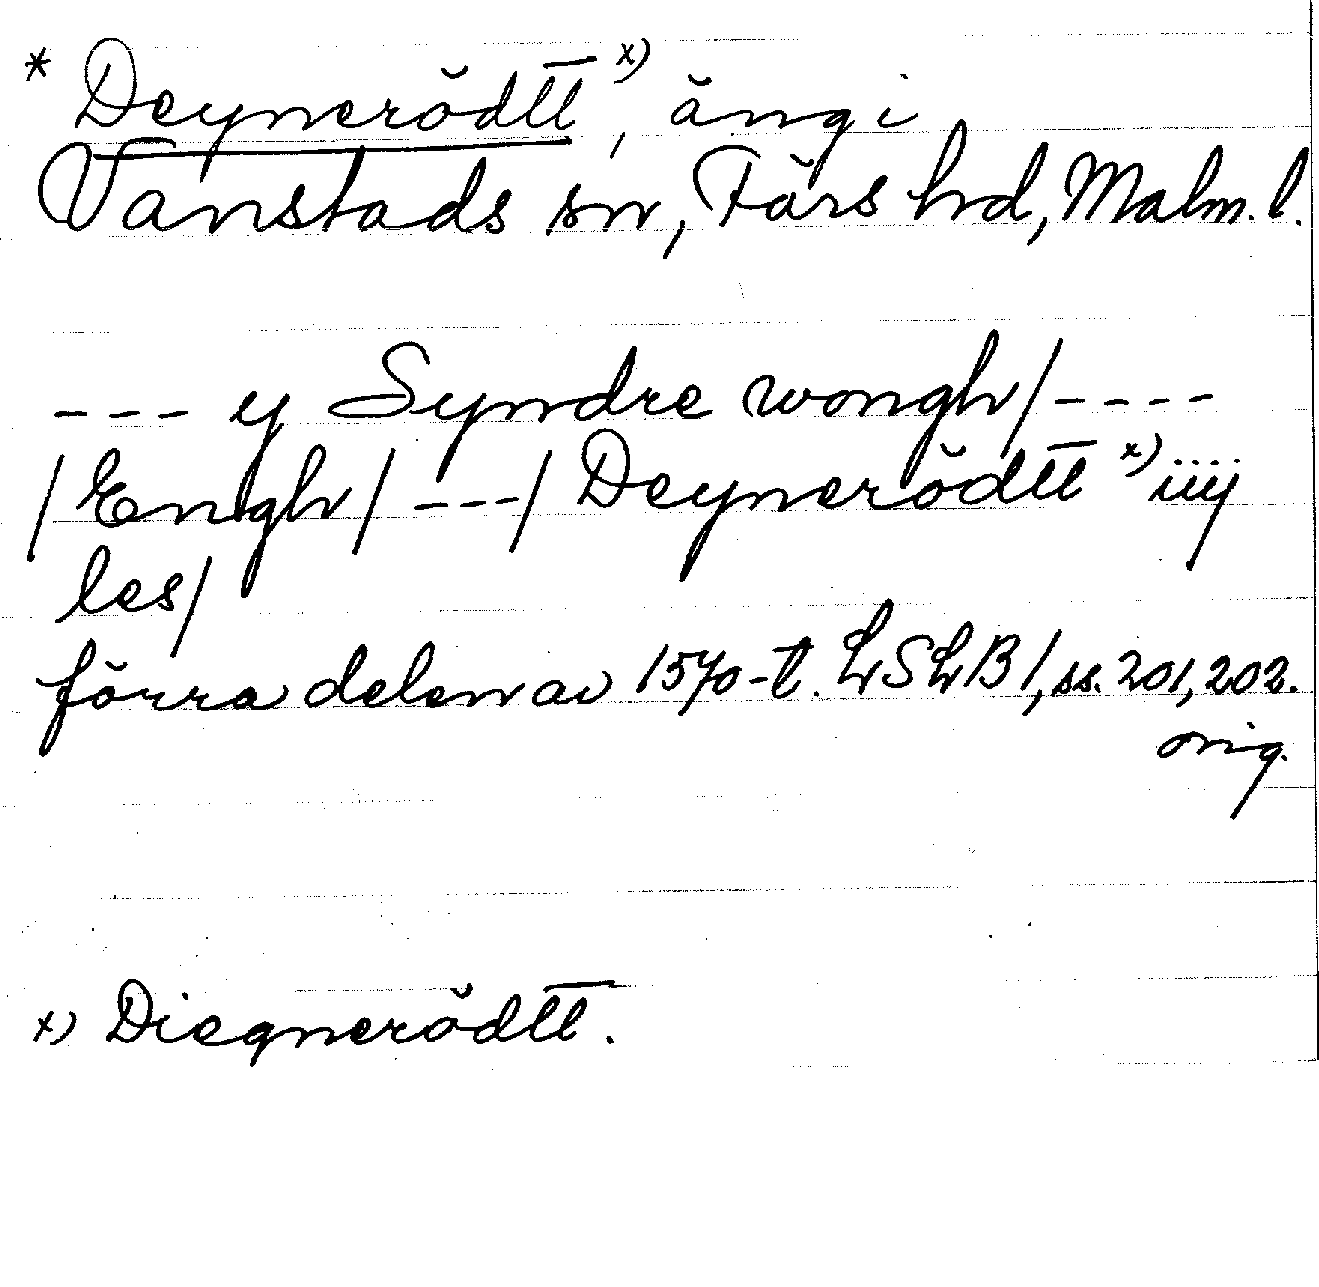 * Deynerödtt x), äng i
Vanstads sn, Färs hd, Malm. l.
--- y Syndre wongh/----
/Engh/---/Deynerödtt x) iiij
les/
förra delen av 1570-t. LSLB1, ss. 201, 202.
orig.
x) Diegnerödtt.